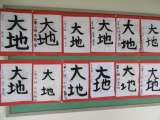 大地
大地
大地
大地
大地
大地
大地
大地
大地
大地
大地
大地